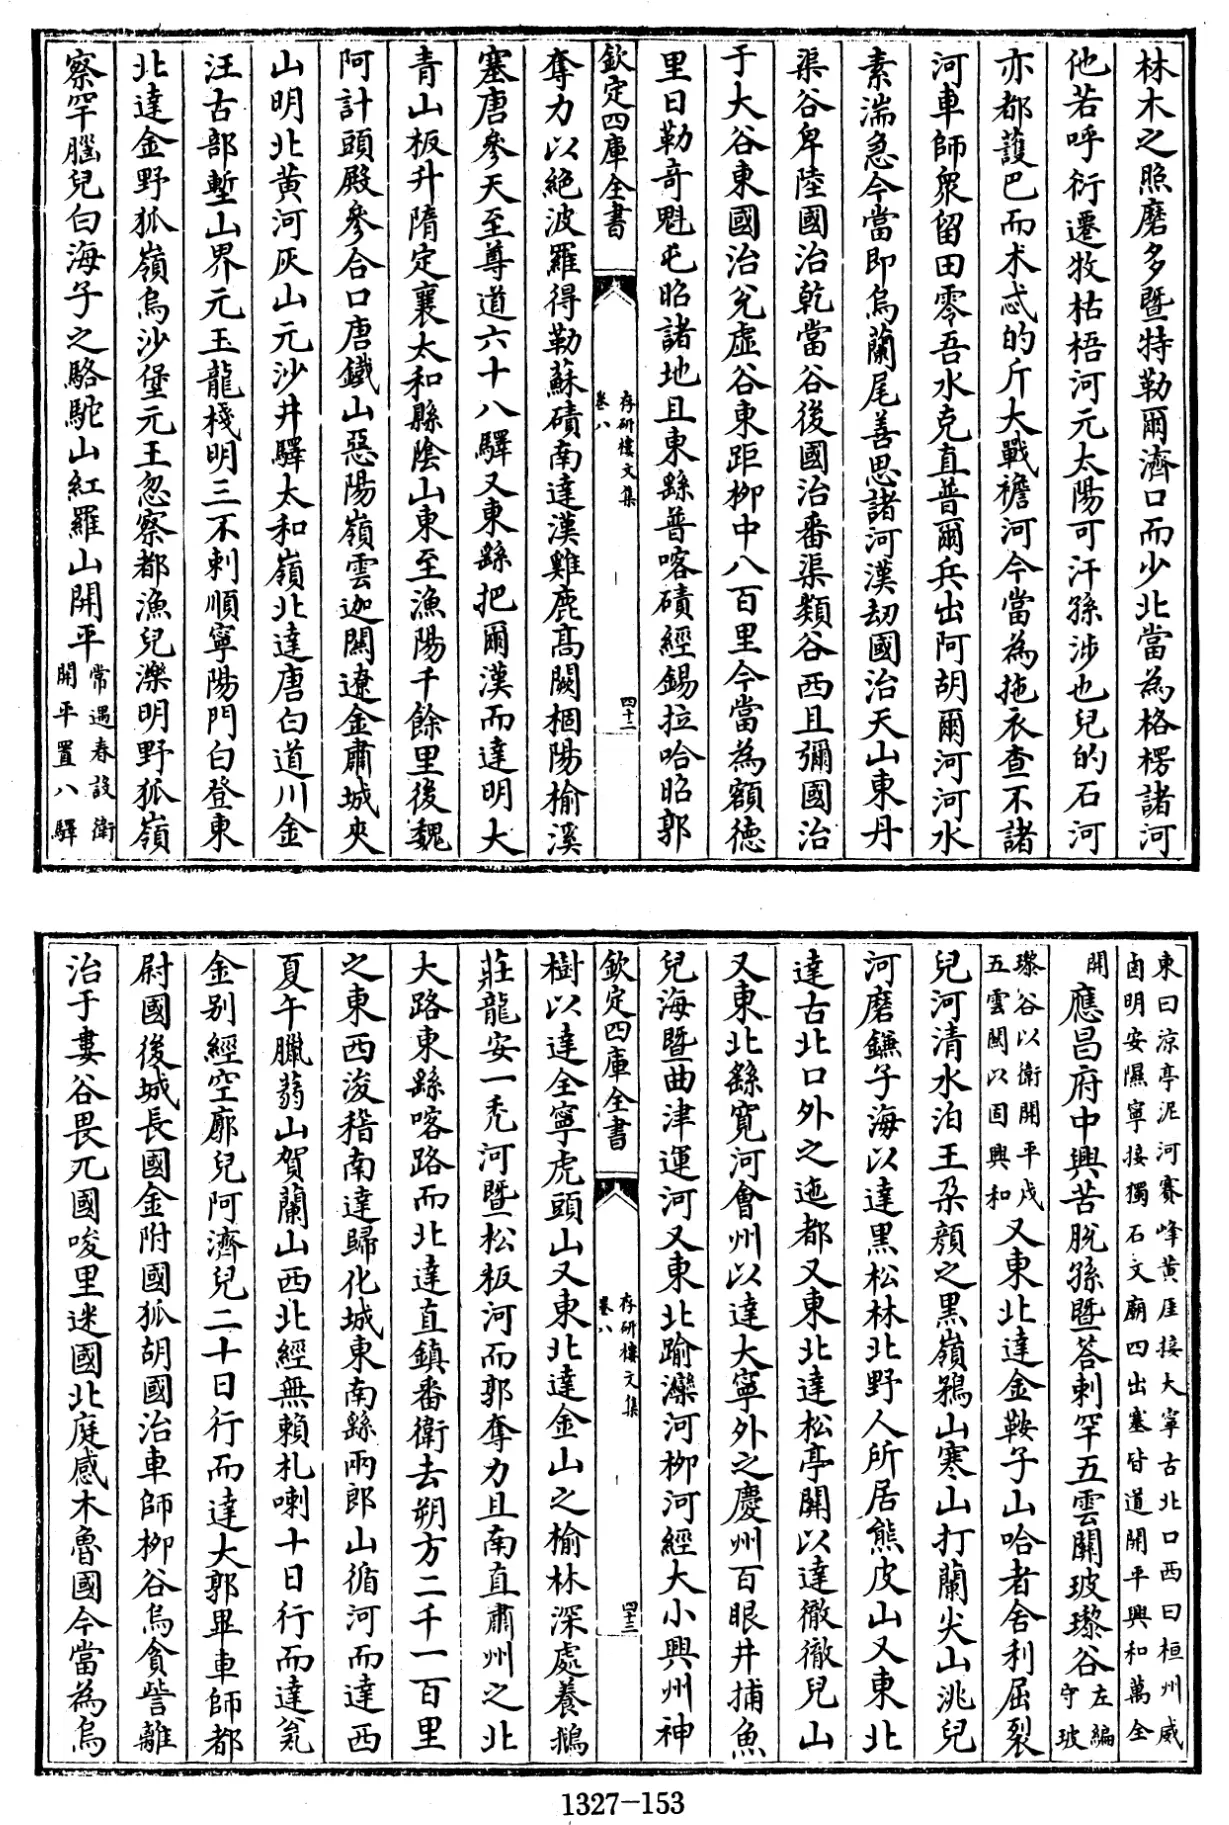 林木之照磨多暨特勒爾濟口而少北當為格楞諸河
他若呼衍遷牧枯梧河元太陽可汗孫涉也兒的石河
亦都護巴而朮忒的斤大戰襜河今當為拖衣查不諸
河車師眾留田零吾水克直普爾兵出阿胡爾河河水
素湍急今當即烏蘭尾善思諸河漢刼國治天山東丹
渠谷卑陸國治乾當谷後國治番渠類谷西且彌國治
于大谷東國治兊虛谷東距柳中八百里今當為額德
里日勒竒魁毛昭諸地且東繇普喀磧經錫拉哈昭郭
欽定四庫全書
存研樓文集
卷八
四十二
奪力以絶波羅得勒蘇磧南達漢雞鹿髙闕梱陽榆溪
塞唐參天至尊道六十八驛又東繇把爾漢而達明大
青山板升隋定襄太和縣陰山東至漁陽千餘里後魏
阿計頭殿參合口唐鐵山惡陽嶺雲迦闗遼金肅城夾
山明北黄河灰山元沙井驛太和嶺北達唐白道川金
汪古部塹山界元玉龍棧明三不剌順寧陽門白登東
北達金野狐嶺烏沙堡元王忽察都漁兒灤明野狐嶺
察罕腦兒白海子之駱駝山紅羅山開平常遇春設衛
開平置八驛
東曰涼亭泥河賽峰黄厓接大寧古北口西曰桓州威
鹵明安隰寧接獨石文廟四出塞皆道開平興和萬全
開應昌府中興苦脱孫暨荅剌罕五雲闗玻瓈谷左編
守玻
瓈谷以衛開平戍
五雲闗以固興和又東北達金鞍子山哈者舍利屈裂
兒河清水泊王朶顔之黒嶺鵶山寒山打蘭尖山洮兒
河磨鐮子海以達黒松林北野人所居熊皮山又東北
達古北口外之迤都又東北達松亭闗以達徹徹兒山
又東北繇寛河會州以達大寧外之慶州百眼井捕魚
兒海暨曲津運河又東北踰灤河柳河經大小興州神
欽定四庫全書
存研樓文集
卷八
四十三
樹以達全寧虎頭山又東北達金山之榆林深處養鵝
莊龍安一秃河暨松板河而郭奪力且南直肅州之北
大路東繇喀路而北達直鎮番衛去朔方二千一百里
之東西浚稽南達歸化城東南繇兩郎山循河而達西
夏午臘蒻山賀蘭山西北經無賴札喇十日行而達兊
金别經空廓兒阿濟兒二十日行而達大郭畢車師都
尉國後城長國金附國狐胡國治車師柳谷烏貪訾離
治于婁谷畏兀國唆里迷國北庭感木魯國今當為烏
1327—153